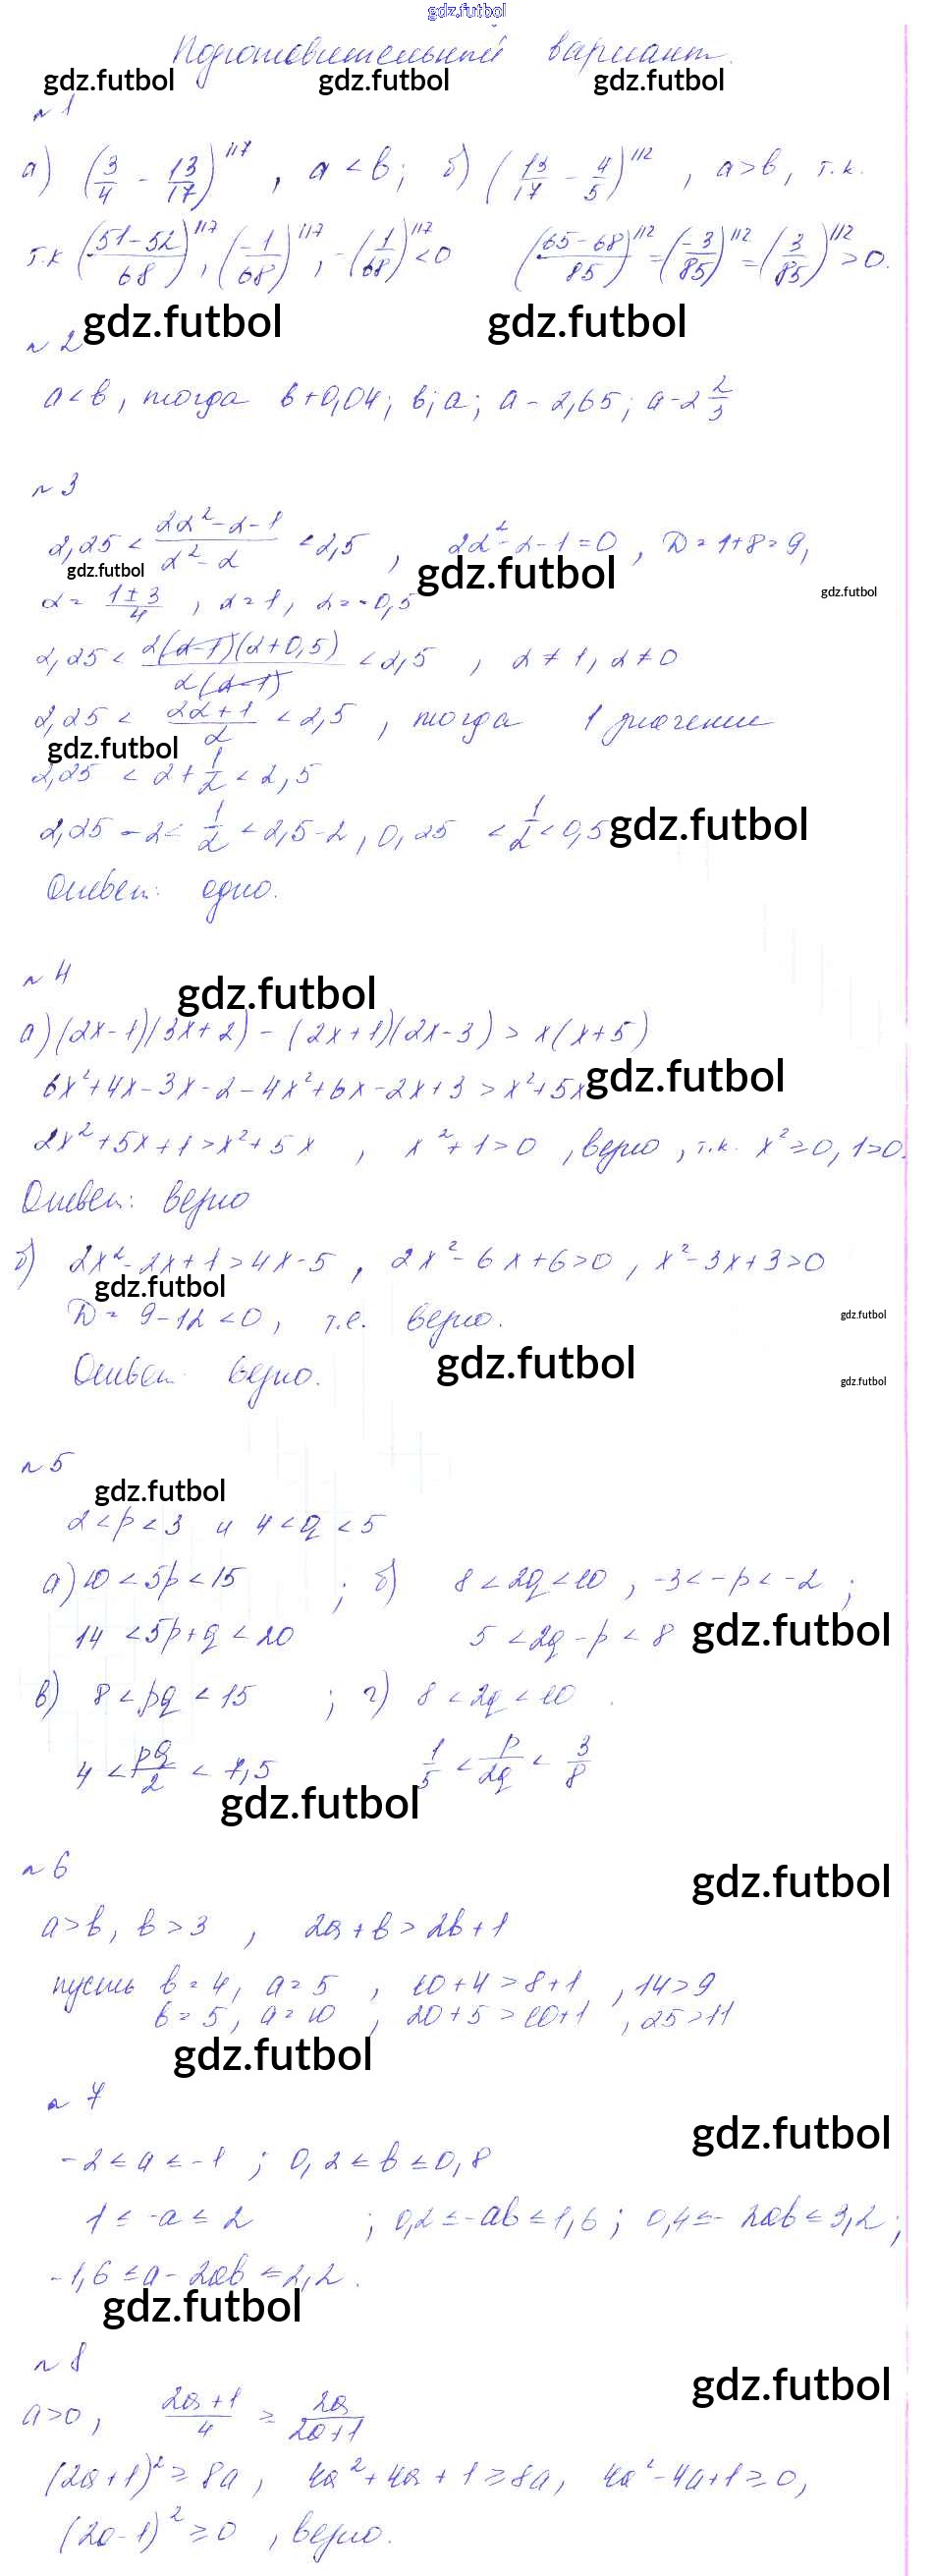 gdz.futbol
Подготовительный вариант.
gdz.futbol gdz.futbol gdz.futbol
№ 1
а) (3/4 - 13/17)^117, a < b; б) (13/17 - 4/5)^112, a > b, т.к.
т.к ((51-52)/68)^117, (-1/68)^117, -(1/68)^117 < 0 ((65-68)/85)^112 = (-3/85)^112 = (3/85)^112 > 0.
gdz.futbol gdz.futbol
№ 2
a < b, тогда b+0,04; b; a; a - 2,65; a - 2 2/3
№ 3
2,25 < (2α² - α - 1)/(α² - α) < 2,5, 2α² - α - 1 = 0, D = 1+8 = 9,
gdz.futbol gdz.futbol gdz.futbol
α = (1 ± 3)/4, α = 1, α = -0,5
2,25 < 2(α-1)(α+0,5)/α(α-1) < 2,5, α ≠ 1, α ≠ 0
2,25 < (2α+1)/α < 2,5, тогда 1 значение
gdz.futbol
2,25 < 2 + 1/α < 2,5
2,25 - 2 < 1/α < 2,5 - 2, 0,25 < 1/α < 0,5
gdz.futbol
Ответ: одно.
№ 4
gdz.futbol
а) (2x-1)(3x+2) - (2x+1)(2x-3) > x(x+5)
6x²+4x-3x-2-4x²+6x-2x+3 > x²+5x
gdz.futbol
2x²+5x+1 > x²+5x, x²+1 > 0, верно, т.к. x² ≥ 0, 1>0.
Ответ: верно
б) 2x²-2x+1 > 4x-5, 2x²-6x+6>0, x²-3x+3>0
gdz.futbol
D = 9-12 < 0, т.е. верно.
gdz.futbol
Ответ: верно.
gdz.futbol
gdz.futbol
№ 5
gdz.futbol
2 < p < 3 и 4 < q < 5
а) 10 < 5p < 15; б) 8 < 2q < 10, -3 < -p < -2;
14 < 5p+q < 20 5 < 2q-p < 8
gdz.futbol
в) 8 < pq < 15; г) 8 < 2q < 10.
4 < pq/2 < 7,5 1/5 < p/2q < 3/8
gdz.futbol
№ 6
gdz.futbol
a > b, b > 3, 2a+b > 2b+1
пусть b = 4, a = 5, 10+4 > 8+1, 14 > 9
b = 5, a = 10, 20+5 > 10+1, 25 > 11
gdz.futbol
№ 7
gdz.futbol
-2 ≤ a ≤ -1; 0,2 ≤ b ≤ 0,8
1 ≤ -a ≤ 2; 0,2 ≤ -ab ≤ 1,6; 0,4 ≤ -2ab ≤ 3,2;
-1,6 ≤ a - 2ab ≤ 2,2.
gdz.futbol
№ 8
gdz.futbol
a > 0, (2a+1)/4 ≥ 2a/(2a+1)
(2a+1)² ≥ 8a, 4a²+4a+1 ≥ 8a, 4a²-4a+1 ≥ 0,
(2a-1)² ≥ 0, верно.